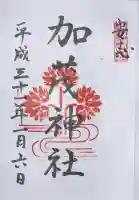 加茂神社
平成三十一年一月六日